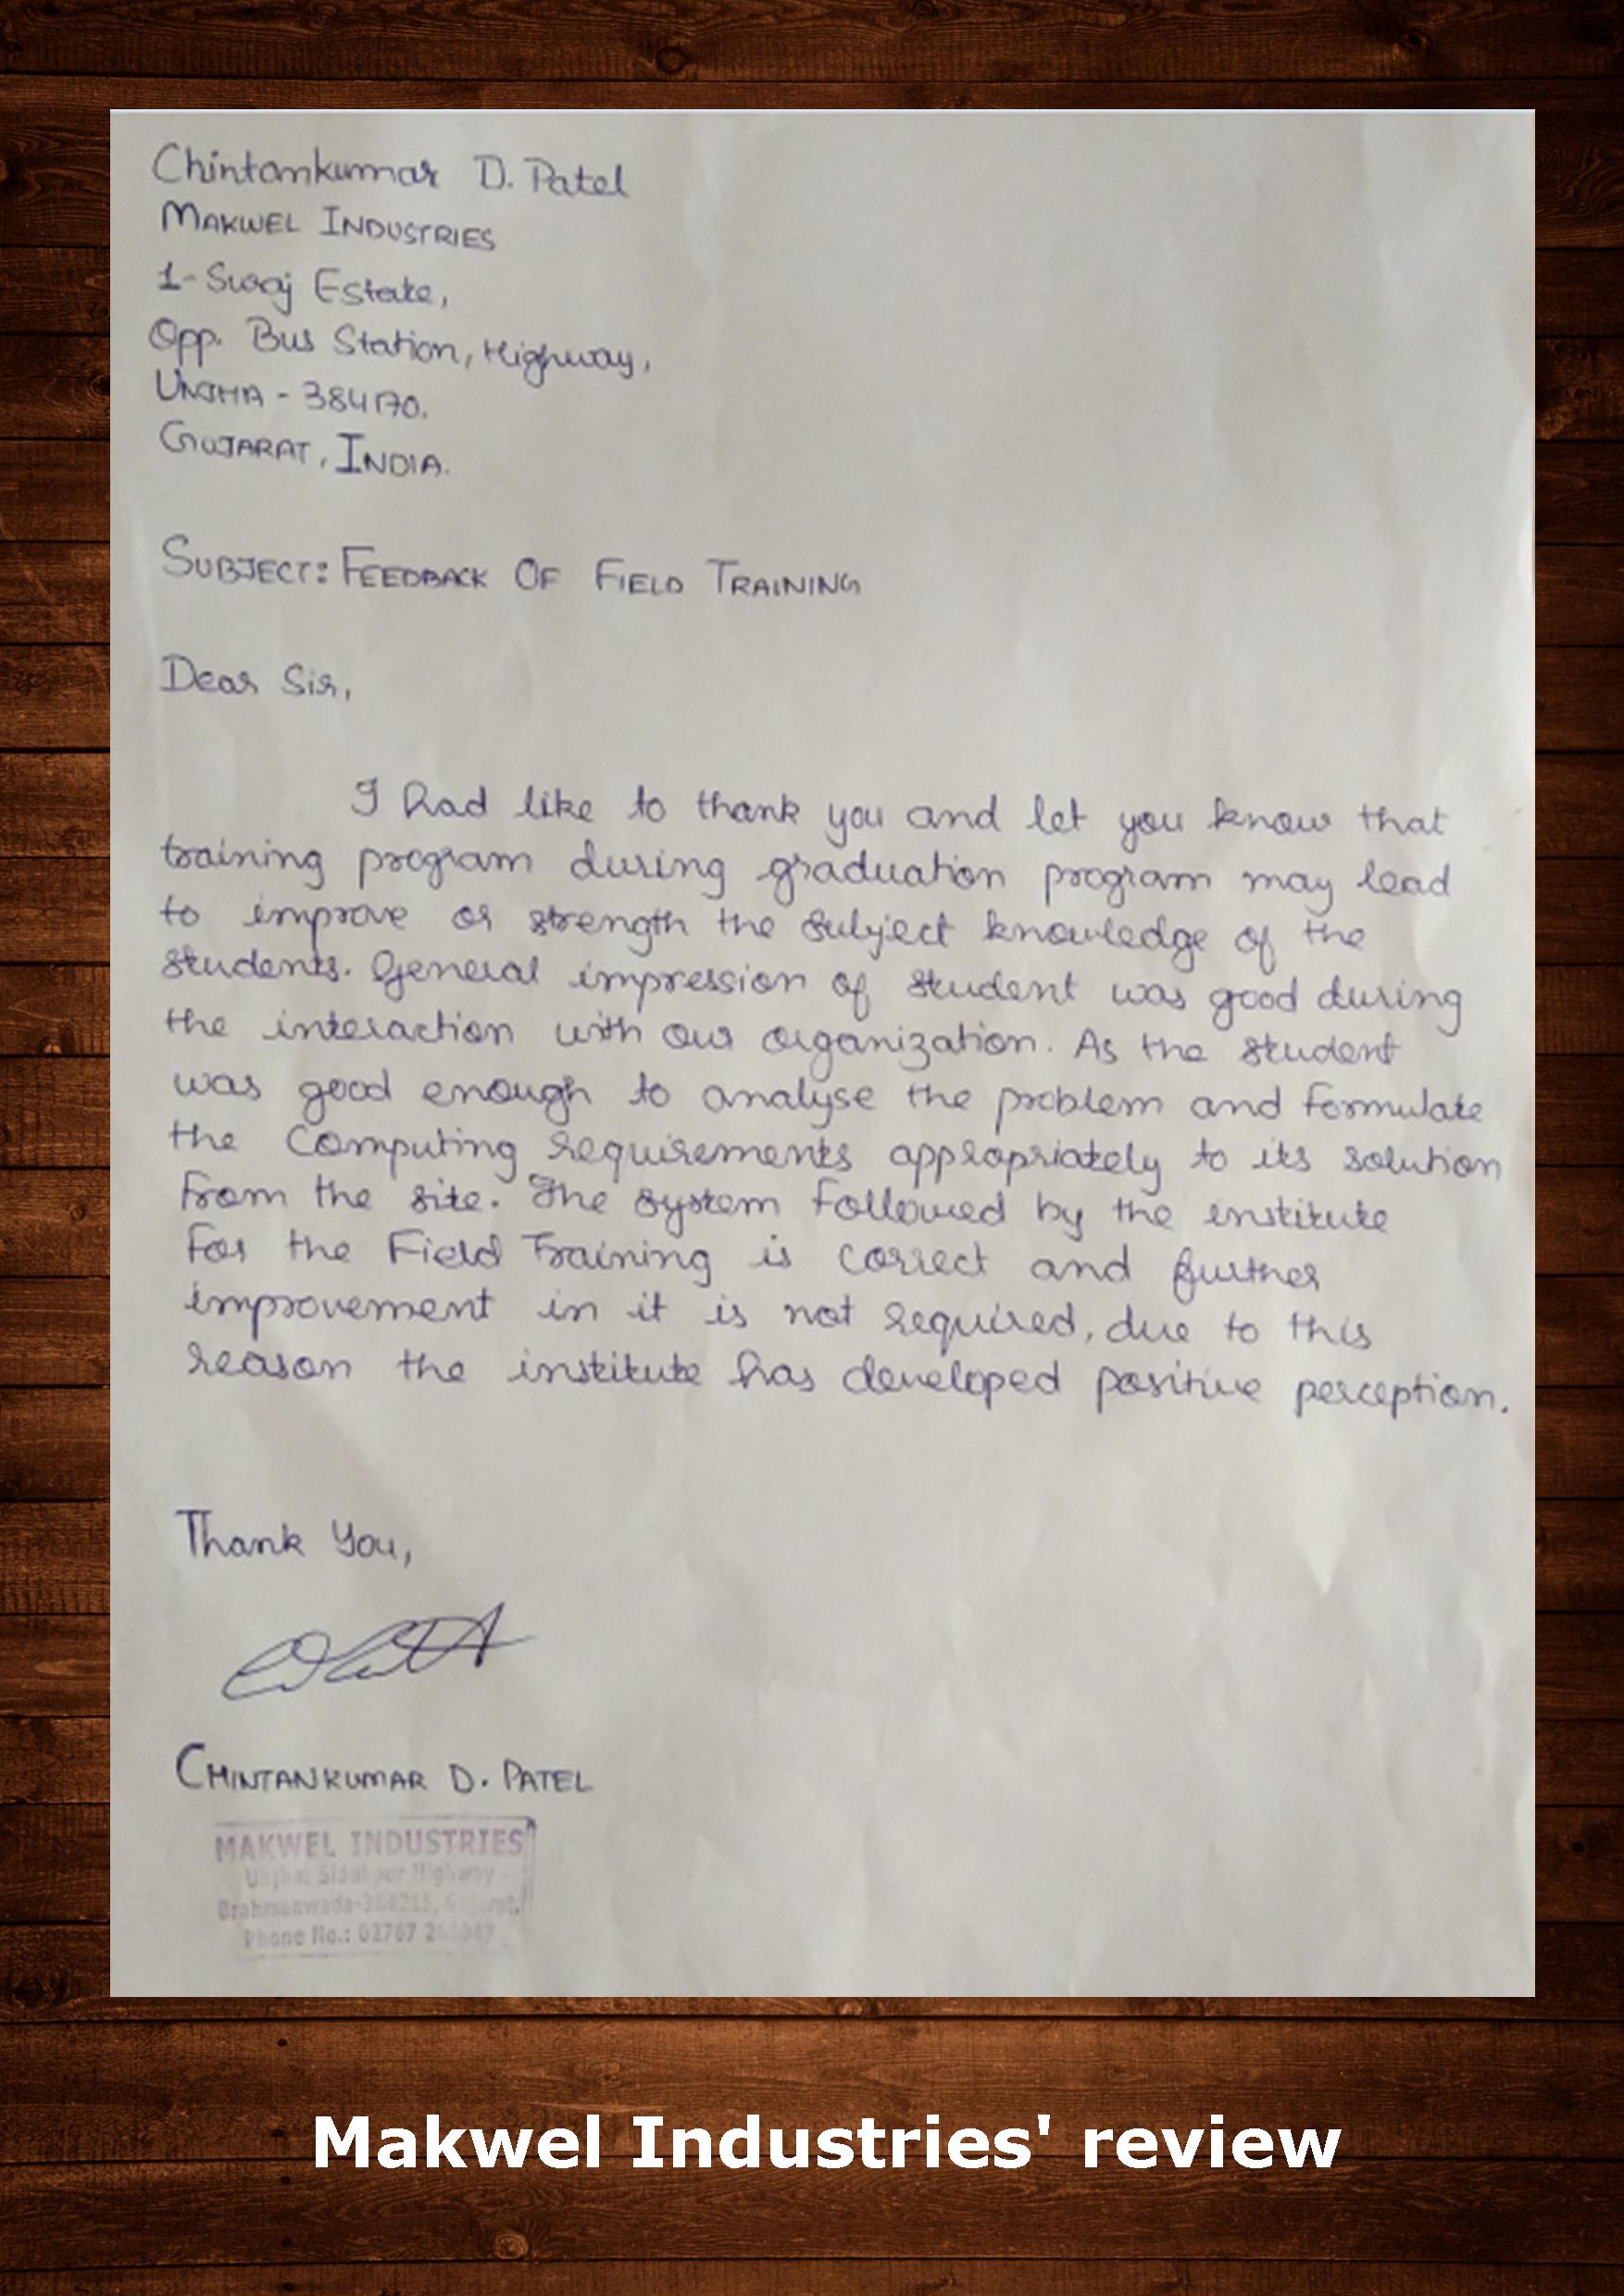 Chintankumar D. Patel
MAKWEL INDUSTRIES
1- Swaj Estate,
Opp. Bus Station, Highway,
UNJHA - 384170.
GUJARAT, INDIA.
SUBJECT: FEEDBACK OF FIELD TRAINING
Dear Sir,
I had like to thank you and let you know that
training program during graduation program may lead
to improve or strength the subject knowledge of the
students. General impression of student was good during
the interaction with our organization. As the student
was good enough to analyse the problem and formulate
the computing requirements appropriately to its solution
from the site. The system followed by the institute
for the Field Training is correct and further
improvement in it is not required, due to this
reason the institute has developed positive perception.
Thank You,
CHINTANKUMAR D. PATEL
MAKWEL INDUSTRIES
Highway
Phone No.: 02767
Makwel Industries' review